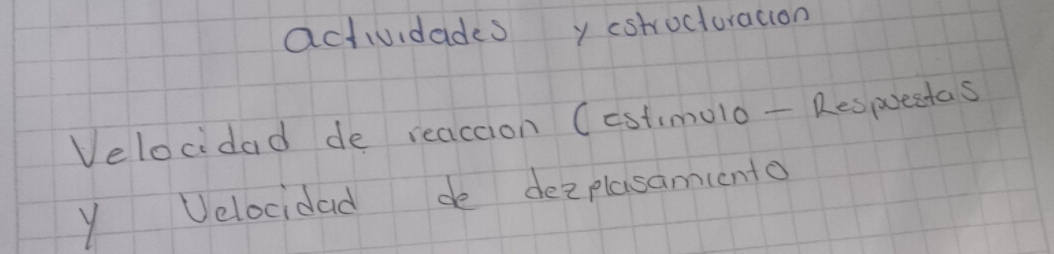 actividades y estructuracion
Velocidad de reaccion (estimulo - Respuestas
y Velocidad de dezplasamiento